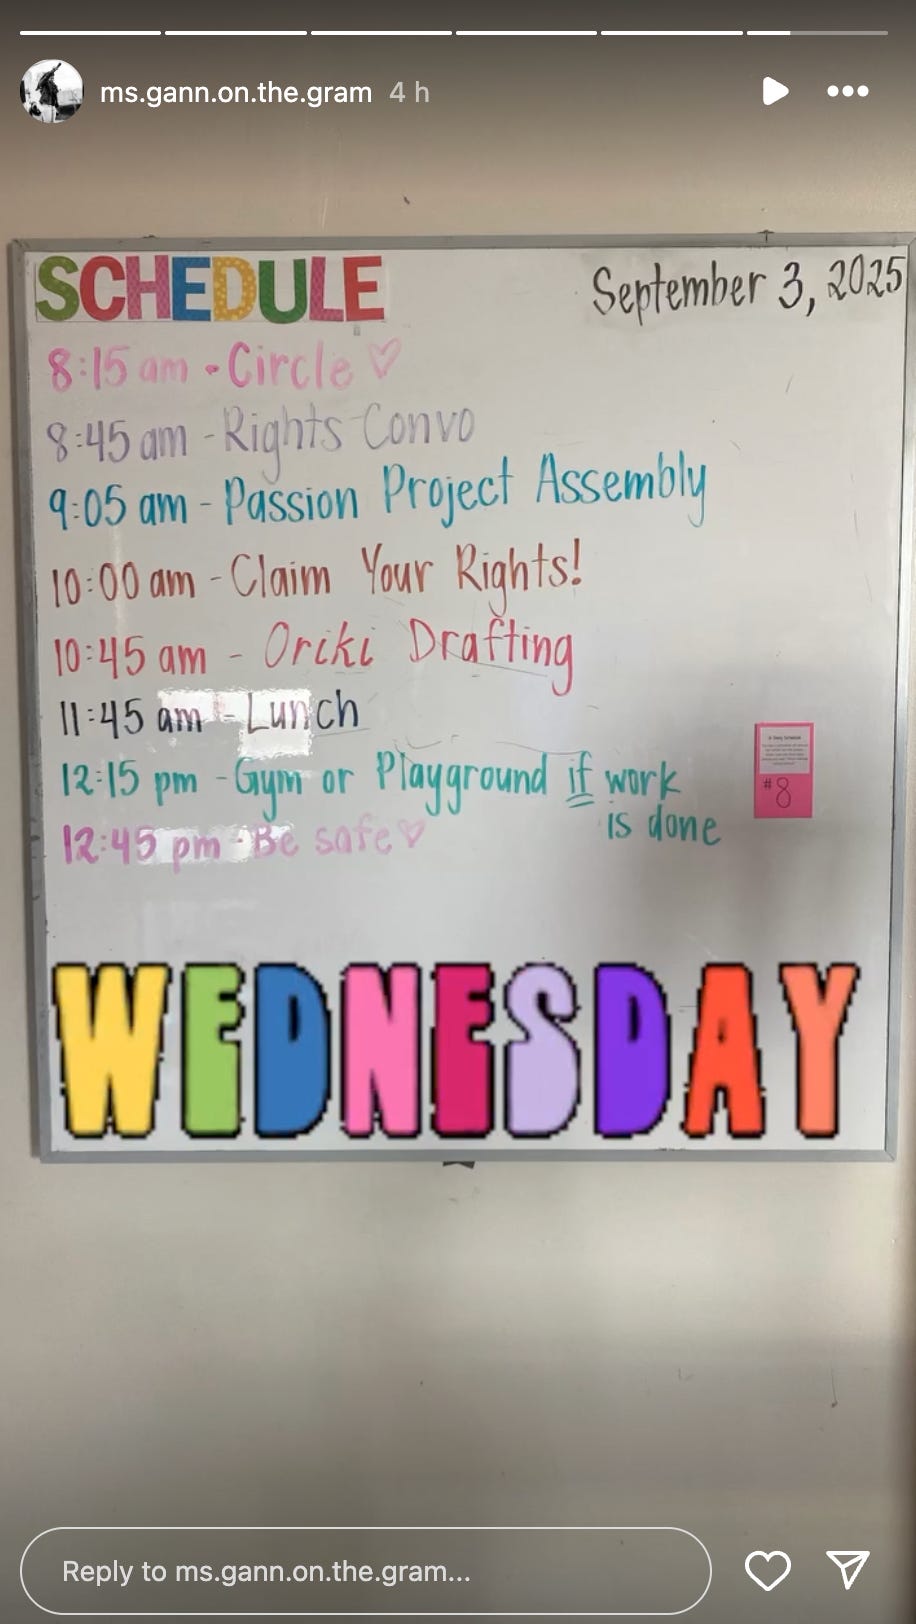 ms.gann.on.the.gram 4 h
SCHEDULE
September 3, 2025
8:15 am - Circle ♡
8:45 am - Rights Convo
9:05 am - Passion Project Assembly
10:00 am - Claim Your Rights!
10:45 am - Oriki Drafting
11:45 am - Lunch
12:15 pm - Gym or Playground if work
is done
12:45 pm - Be safe ♡
#8
WEDNESDAY
Reply to ms.gann.on.the.gram...